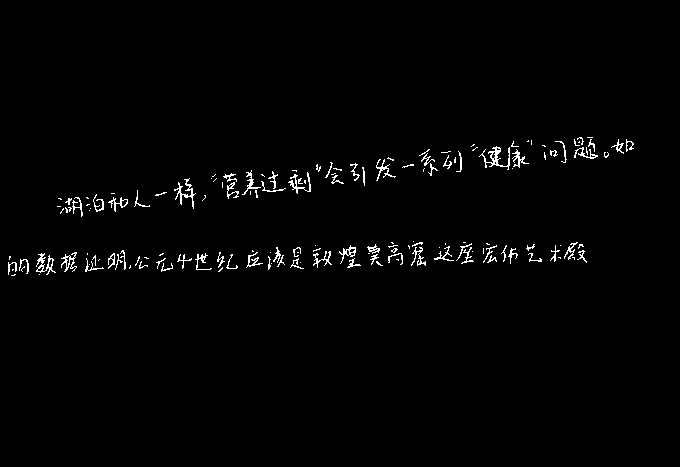 湖泊和人一样，“营养过剩”会引发一系列“健康”问题。如
的数据证明，公元4世纪应该是敦煌莫高窟这座宏伟艺术殿